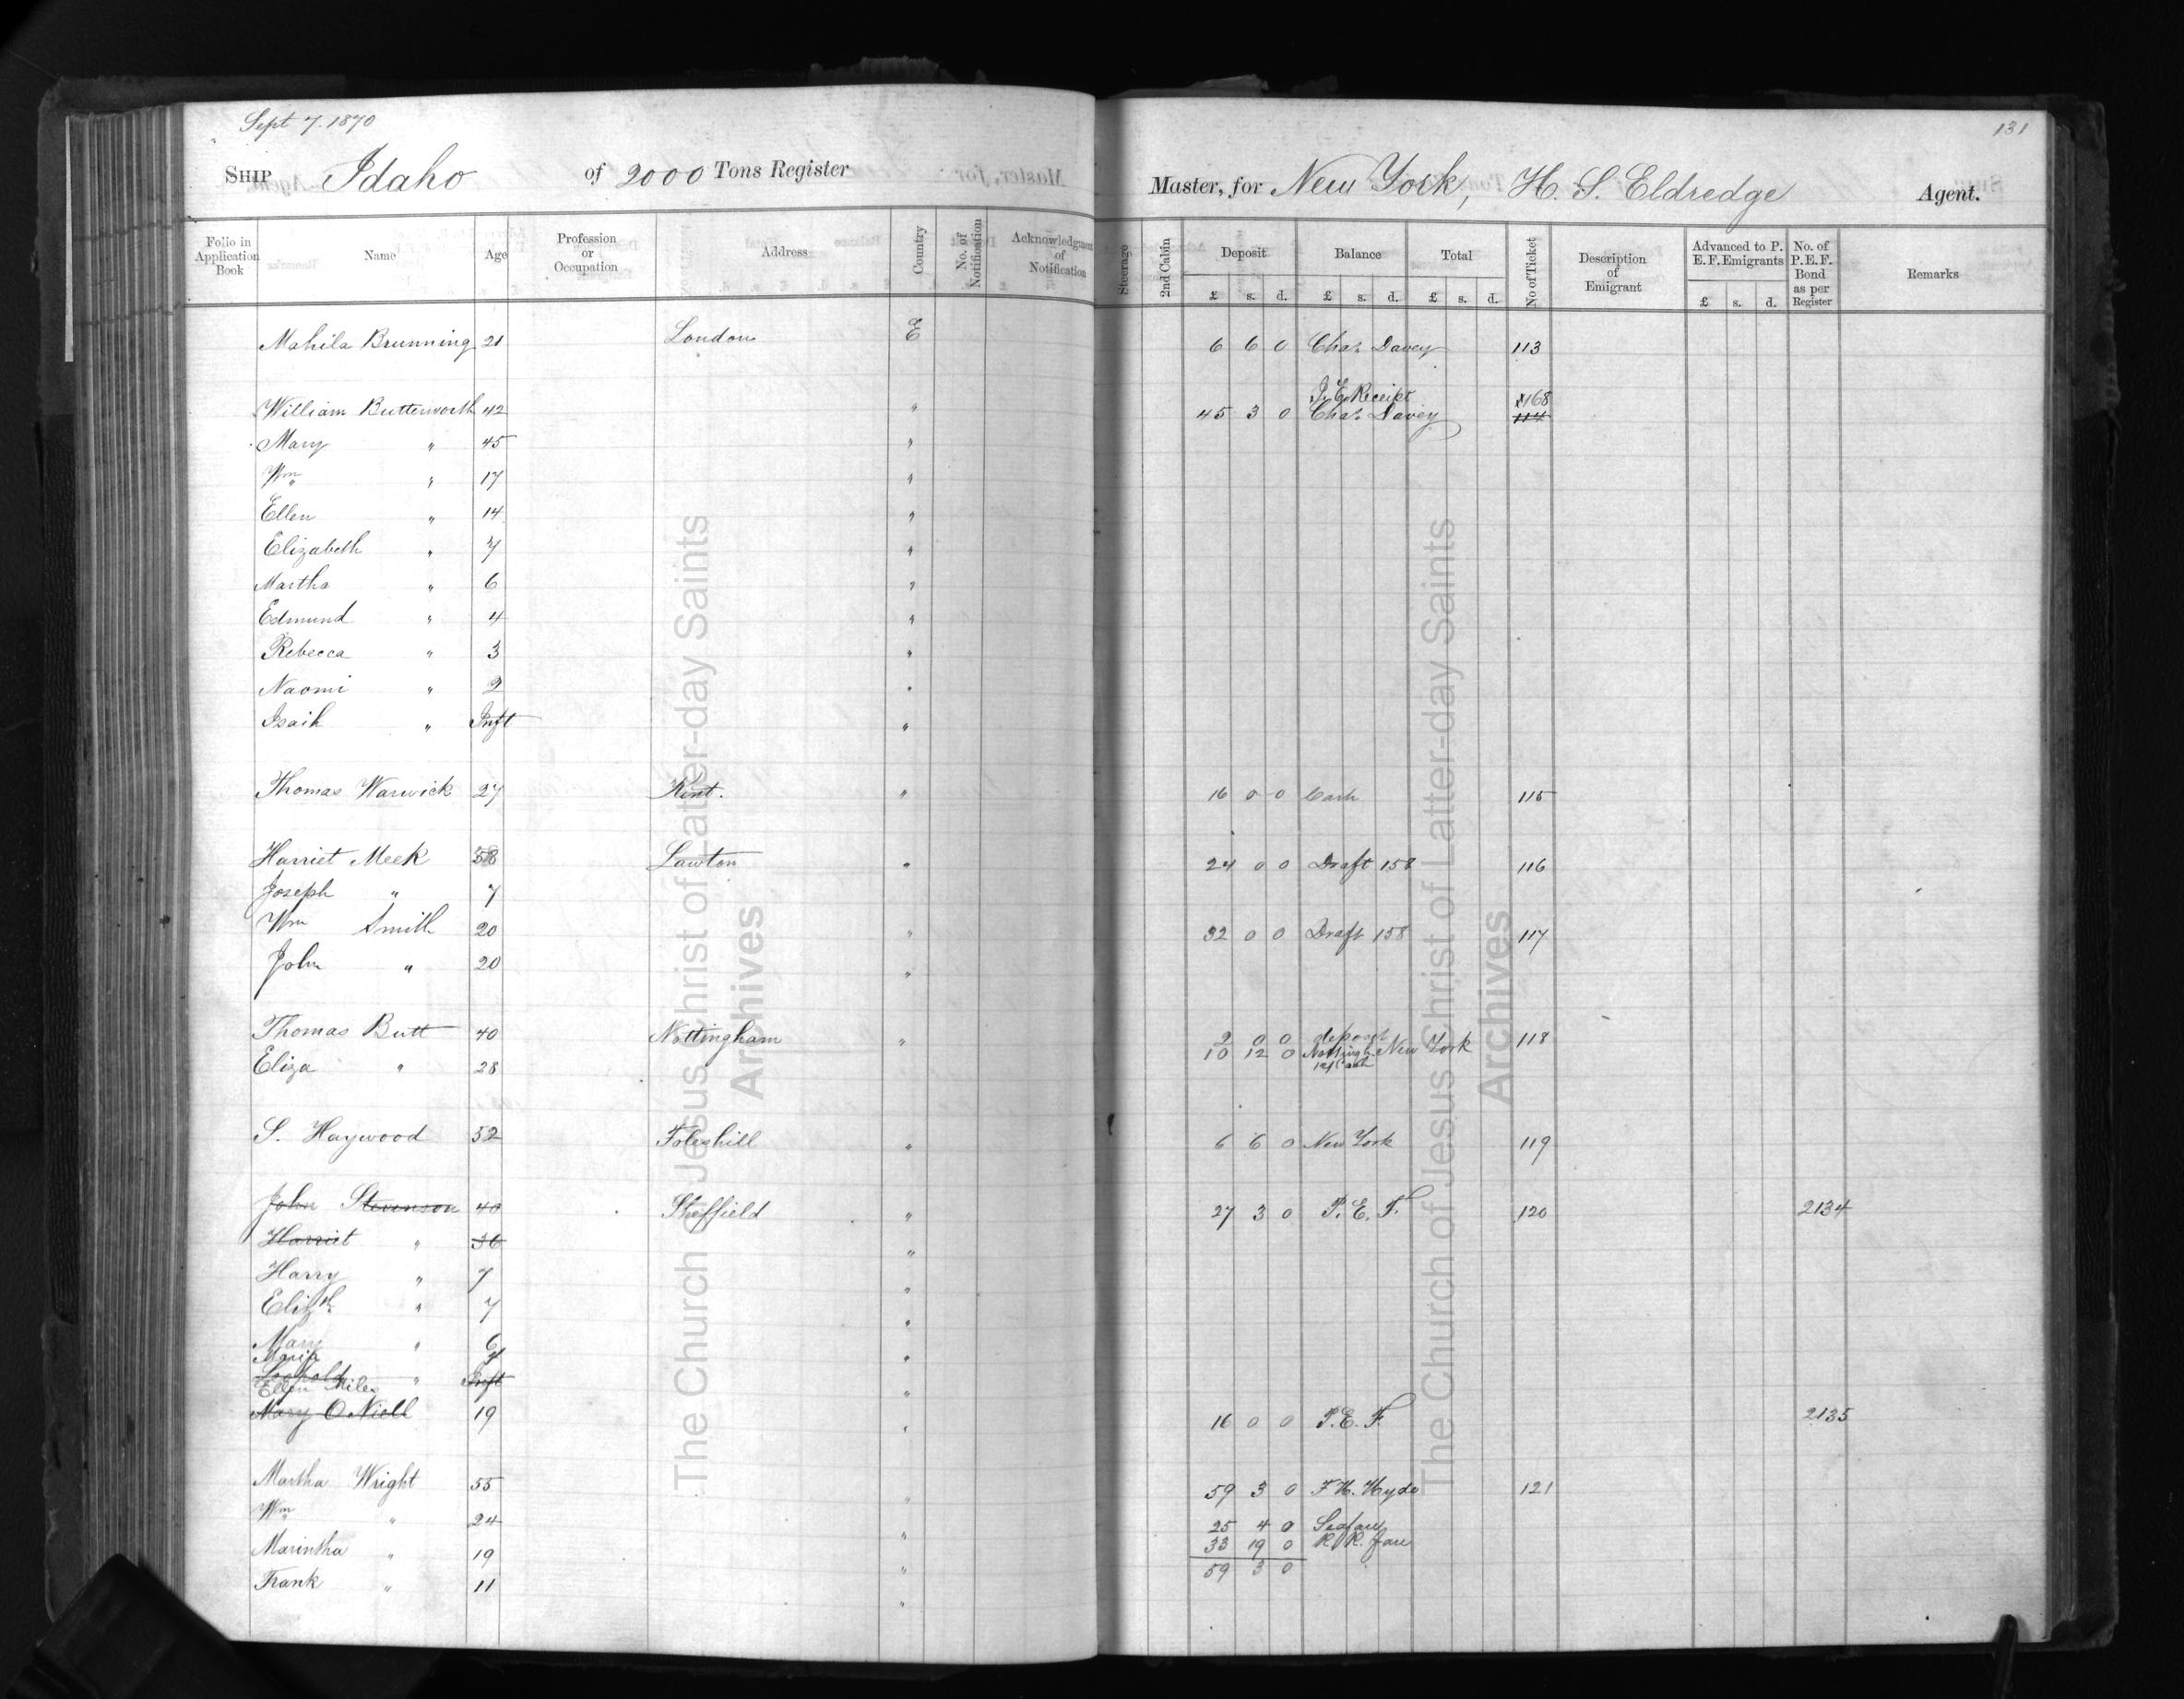 Sept 7. 1870
131
SHIP Idaho of 2000 Tons Register Master, for New York, H. S. Eldredge Agent.
Folio in Application Book Name Age Profession or Occupation Address Country No. of Notification Acknowledgment of Notification Steerage 2nd Cabin Deposit £ s. d. Balance £ s. d. Total £ s. d. No of Ticket Description of Emigrant Advanced to P. E. F. Emigrants £ s. d. No. of P. E. F. Bond as per Register Remarks
Mahila Brunning 21 London E 6 6 0 Chas. Davey 113
P. E. Receipt 168
William Butterworth 42 " 45 3 0 Chas. Davey 114
Mary " 45 "
Wm " 17 "
Ellen " 14 "
Elizabeth " 7 "
Martha " 6 "
Edmund " 4 "
Rebecca " 3 "
Naomi " 2 "
Isaih " Inft "
Thomas Warwick 27 Kent. " 16 0 0 Cash 115
Harriet Meek 58 Lawton " 24 0 0 Draft 158 116
Joseph " 7
Wm Smith 20 " 32 0 0 Draft 158 117
John " 20 "
Thomas Butt 40 Nottingham " 2 0 0 deposit 118
10 12 0 Notting New York
Eliza " 28 Cash
S. Haywood 52 Foleshill " 6 6 0 New York 119
John Stevenson 40 Sheffield " 27 3 0 P. E. F. 120 2134
Harriet " 36 "
Harry " 7 "
Elizth " 7 "
Mary " 6 "
Maria
Leopold " Inft "
Ellen Miles
Mary O Niell 19 " 16 0 0 P. E. F. 2135
Martha Wright 55 " 59 3 0 F H. Hyde 121
Wm " 24 " 25 4 0 Seafare
Marintha " 19 " 33 19 0 R. R. fare
Frank " 11 " 59 3 0
The Church of Jesus Christ of Latter-day Saints
Archives
The Church of Jesus Christ of Latter-day Saints
Archives